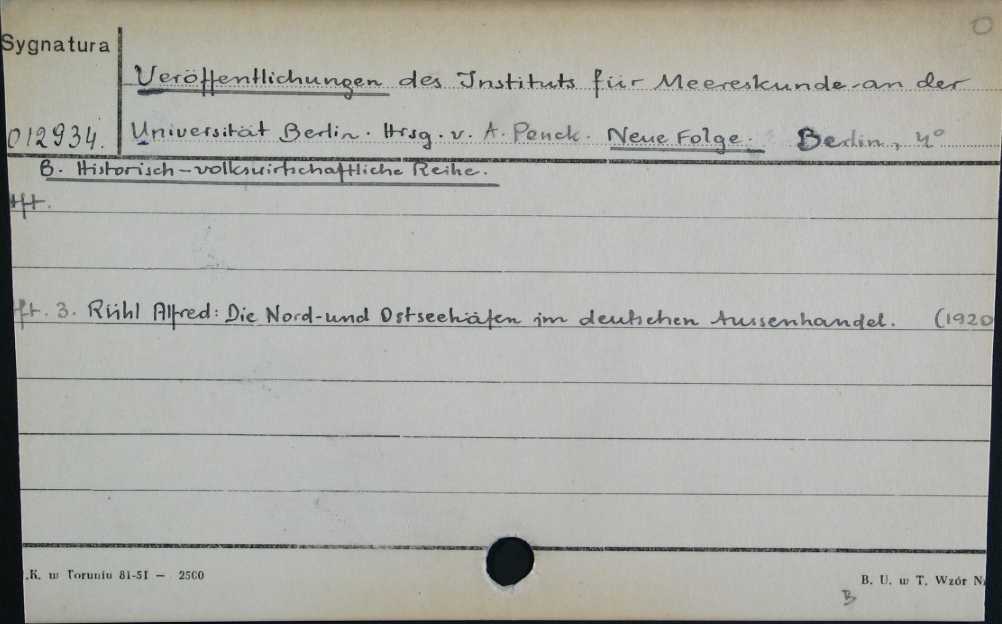 Sygnatura
Veröffentlichungen des Instituts für Meereskunde an der
012934. Universität Berlin. Hrsg. v. A. Penck. Neue Folge. Berlin, 4°
B. Historisch-volkswirtschaftliche Reihe.
Hft.
Hft. 3. Rühl Alfred: Die Nord-und Ostseehäfen im deutschen Aussenhandel. (1920
.K. w Toruniu 81-51 — 2500
B. U. w T. Wzór N
B